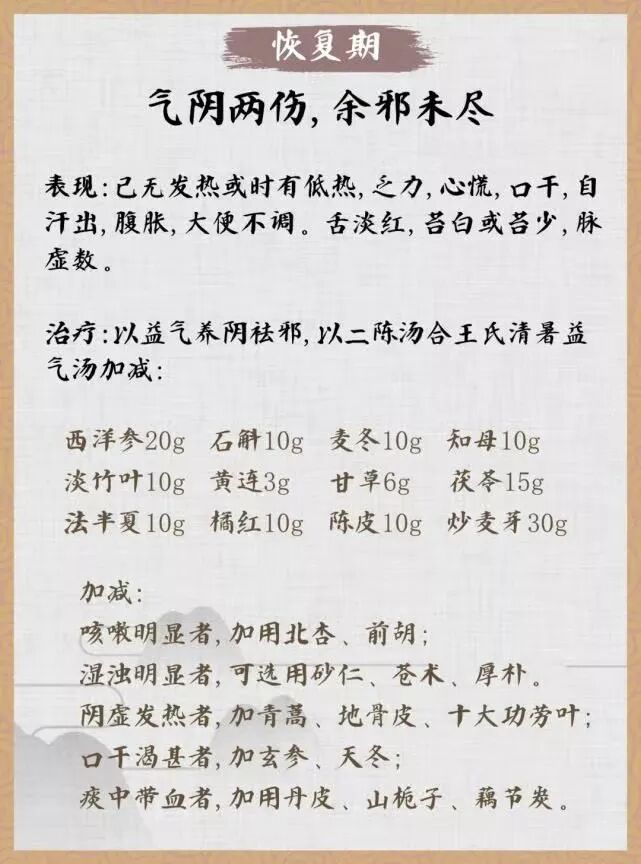 恢复期
气阴两伤,余邪未尽
表现:已无发热或时有低热,乏力,心慌,口干,自
汗出,腹胀,大便不调。舌淡红,苔白或苔少,脉
虚数。
治疗:以益气养阴祛邪,以二陈汤合王氏清暑益
气汤加减:
西洋参20g 石斛10g 麦冬10g 知母10g
淡竹叶10g 黄连3g 甘草6g 茯苓15g
法半夏10g 橘红10g 陈皮10g 炒麦芽30g
加减:
咳嗽明显者,加用北杏、前胡;
湿浊明显者,可选用砂仁、苍术、厚朴。
阴虚发热者,加青蒿、地骨皮、十大功劳叶;
口干渴甚者,加玄参、天冬;
痰中带血者,加用丹皮、山栀子、藕节炭。